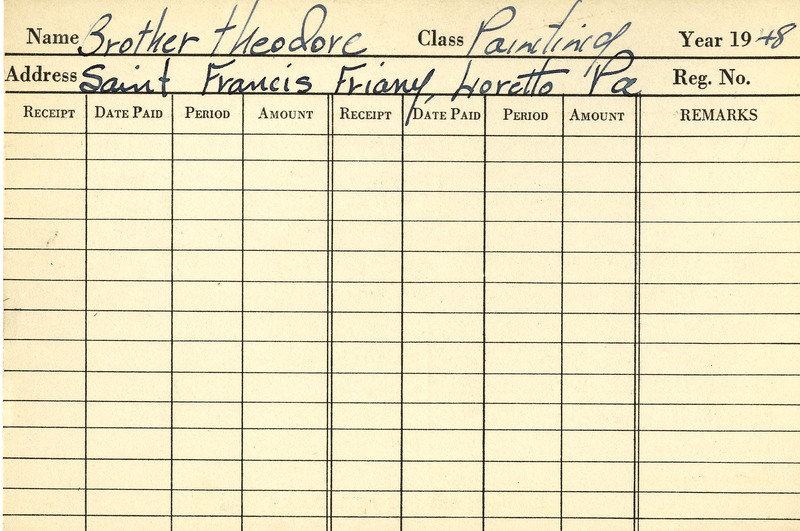 Name Brother Theodore Class Painting Year 1948
Address Saint Francis Friary, Loretto Pa Reg. No.
RECEIPT DATE PAID PERIOD AMOUNT RECEIPT DATE PAID PERIOD AMOUNT REMARKS